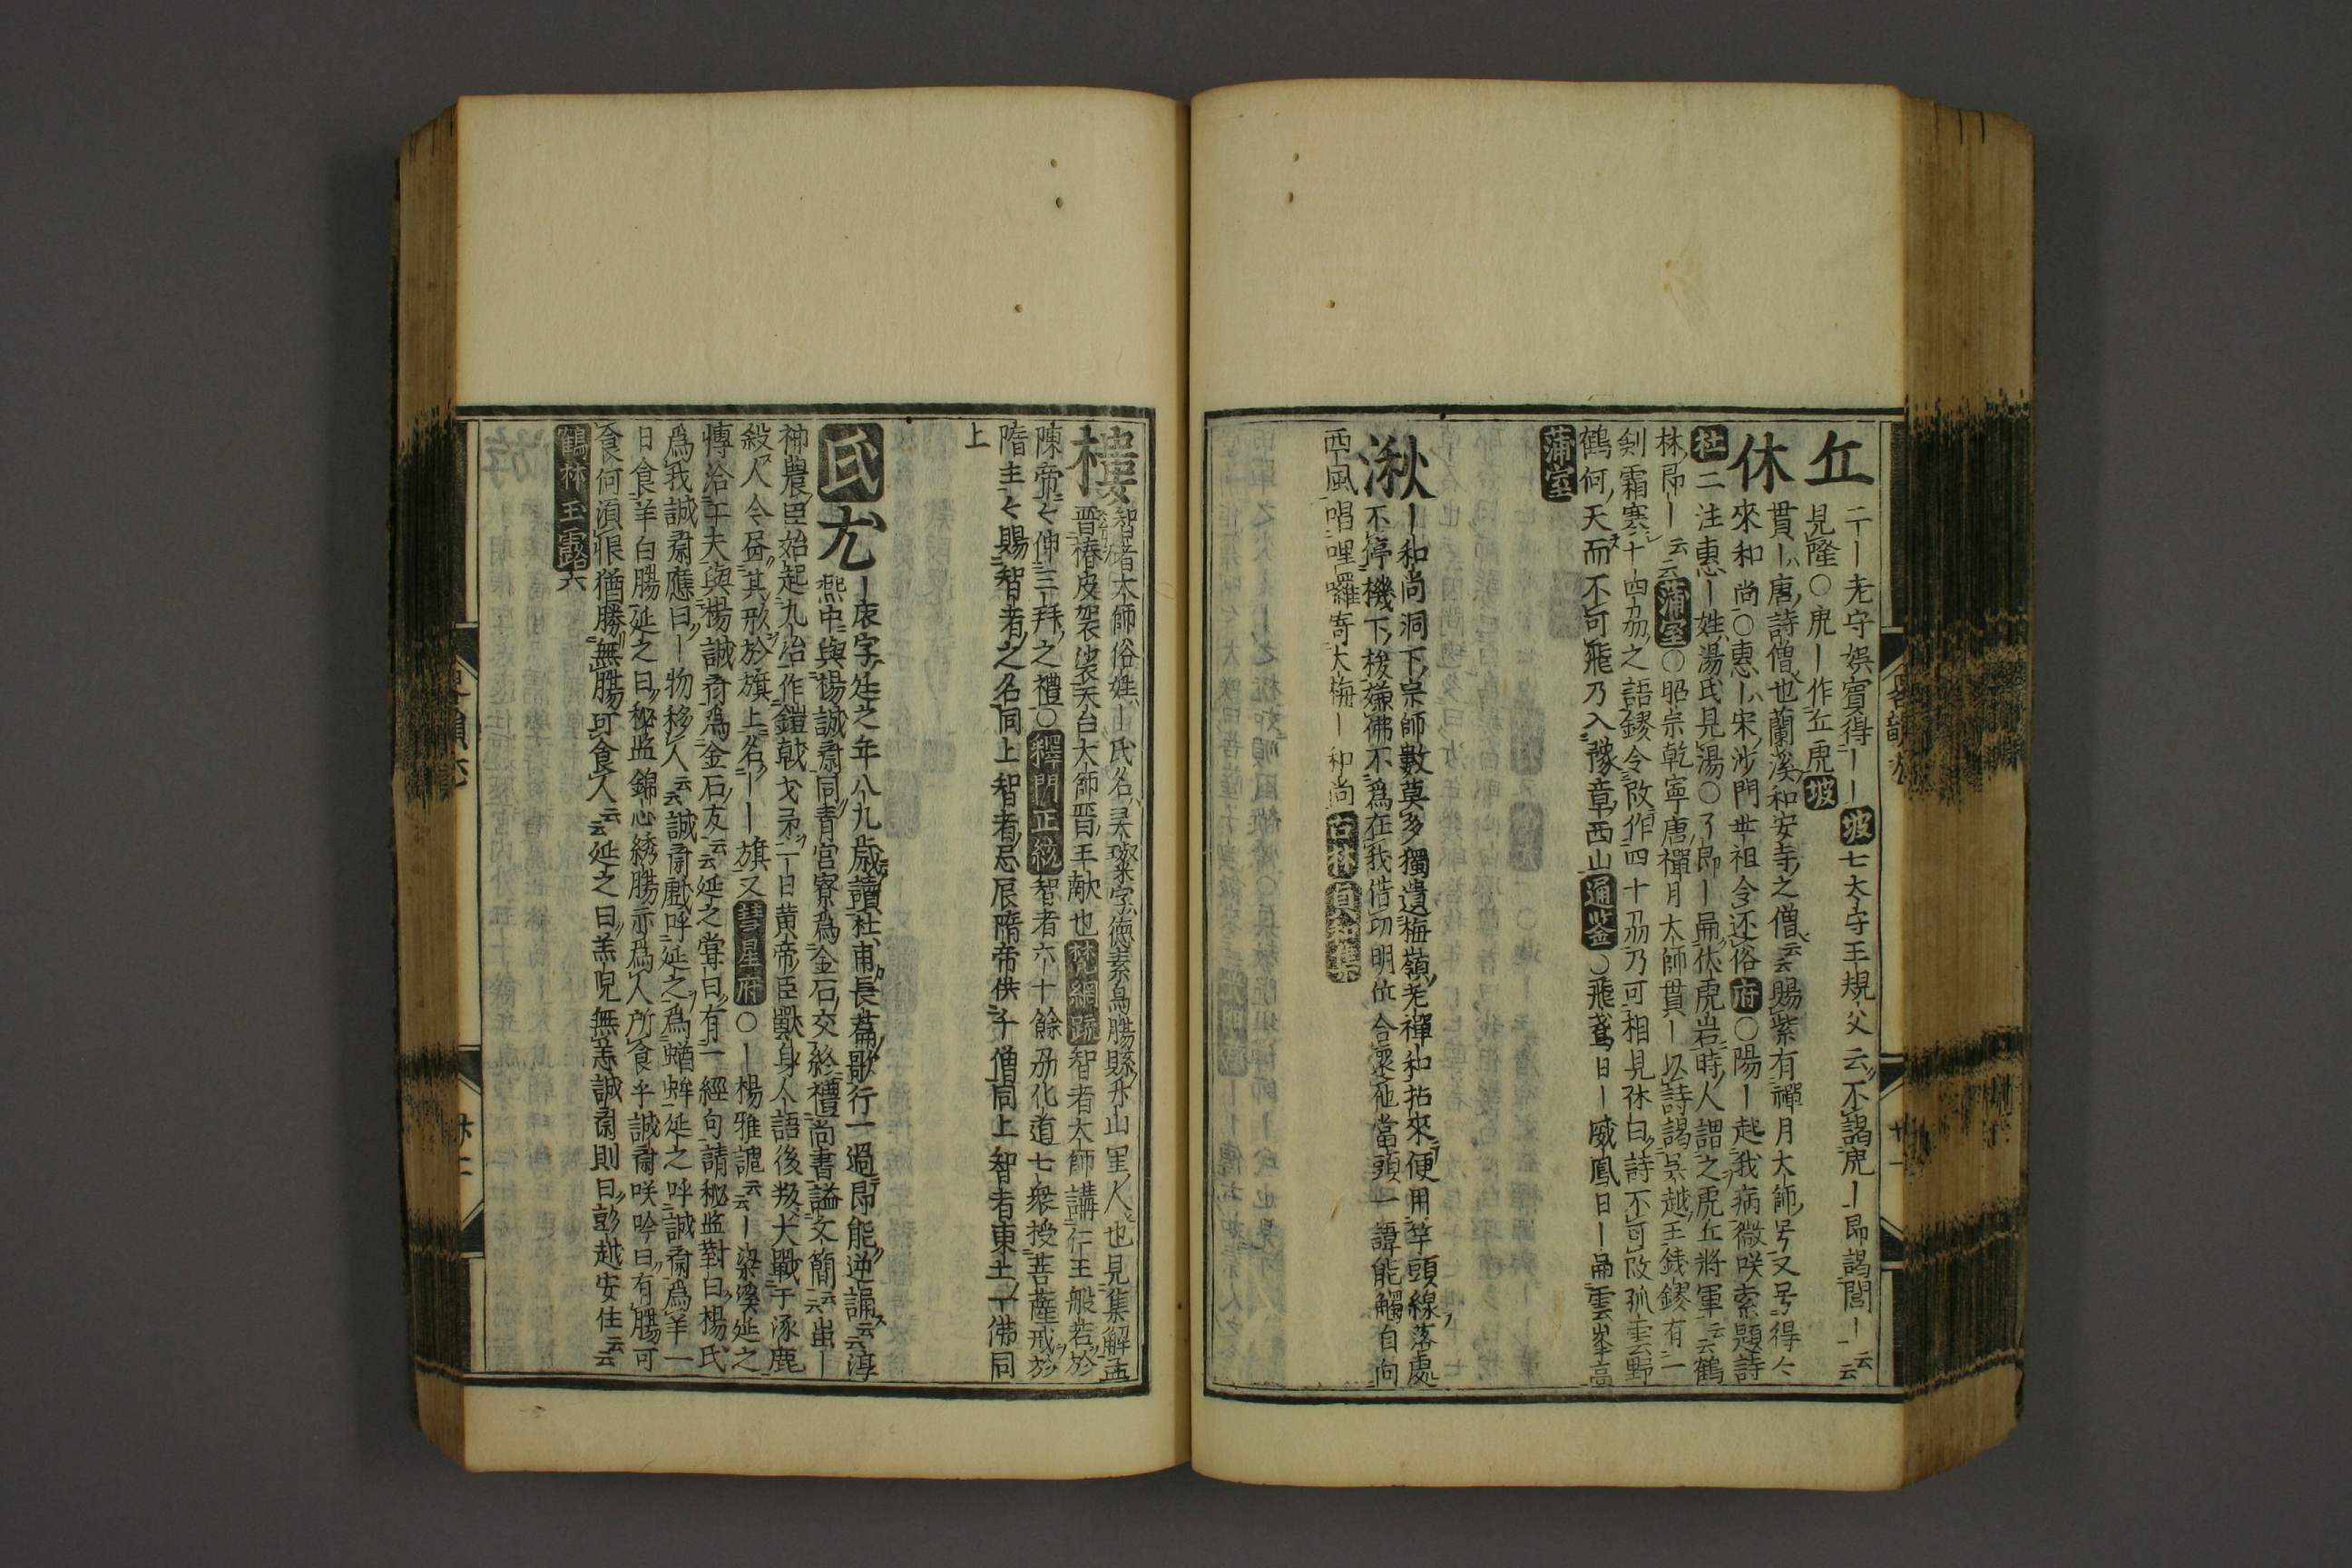 丘 二丨老守娯賓得丨丨坡七太守王規父云不謁虎丨即謁閭丨云云
見隆○虎丨作丘虎坡
休 貫丨唐詩僧也蘭溪和安寺之僧云云賜紫有禪月大師号又号得々
來和尚○惠丨宋沙門世祖令还俗府○陽丨起我病微咲索題詩
杜二注惠丨姓湯氏見湯○了即丨扁伏虎岩時人謂之虎丘將軍云云鶴
林即丨云云蒲室○昭宗乾寧唐禪月大師貫丨以詩謁吴越王銭鏐有一
剣霜寒十四刕之語鏐令改作四十刕乃可相見休曰詩不可改孤雲野
鶴何天而不可飛乃入豫章西山通鑑○飛鸞日丨威鳳日丨扁雲峯高
蒲室
湫 丨和尚洞下宗師數莫多獨遺梅嶺老禪和拈來便用竿頭線落處
不停機下梭嫌佛不爲在我借功明位合還他當頭一諱能觸自向
西風唱哩囉寄大梅丨和尚古林貞和集
棲 智者大師俗姓丨氏名灵璨字德素烏膓縣丹山里人也見集解孟
晋椿皮袈裟天台大師晋王献也梵網疏智者大師講仁王般若於
陳帝々伸三丨拜之禮○釋門正統智者六十餘刕化道七衆授菩薩戒於
隋主々賜智者之名同上智者忌辰隋帝供千僧同上智者東土一佛同
上
氏 尤 丨庚字生之年八九歳讀杜甫長篇歌行一過即能逆誦云云淳
熙中與楊誠斎同青宮寮為金石交終禮尚書謚文簡云云出丨
神農臣始起九冶作鎧戟戈矛二丨日黄帝臣獸身人語後叛大戰于涿鹿
殺人令昼其形於旗上名丨丨旗又彗星府○丨楊雅謔云云丨梁溪延之
博洽工夫與楊誠斎爲金石友云云延之嘗曰有一經句請秘監對曰楊氏
爲我誠斎應曰丨物移人云云誠斎戲呼延之為蝤蛑延之呼誠斎爲羊一
日食羊白膓延之曰秘监錦心綉膓亦爲人所食乎誠斎咲吟曰有膓可
食何湏恨猶勝無膓可食人云云延之曰羔児無恙誠斎則曰彭越安住云云
鶴林玉露六